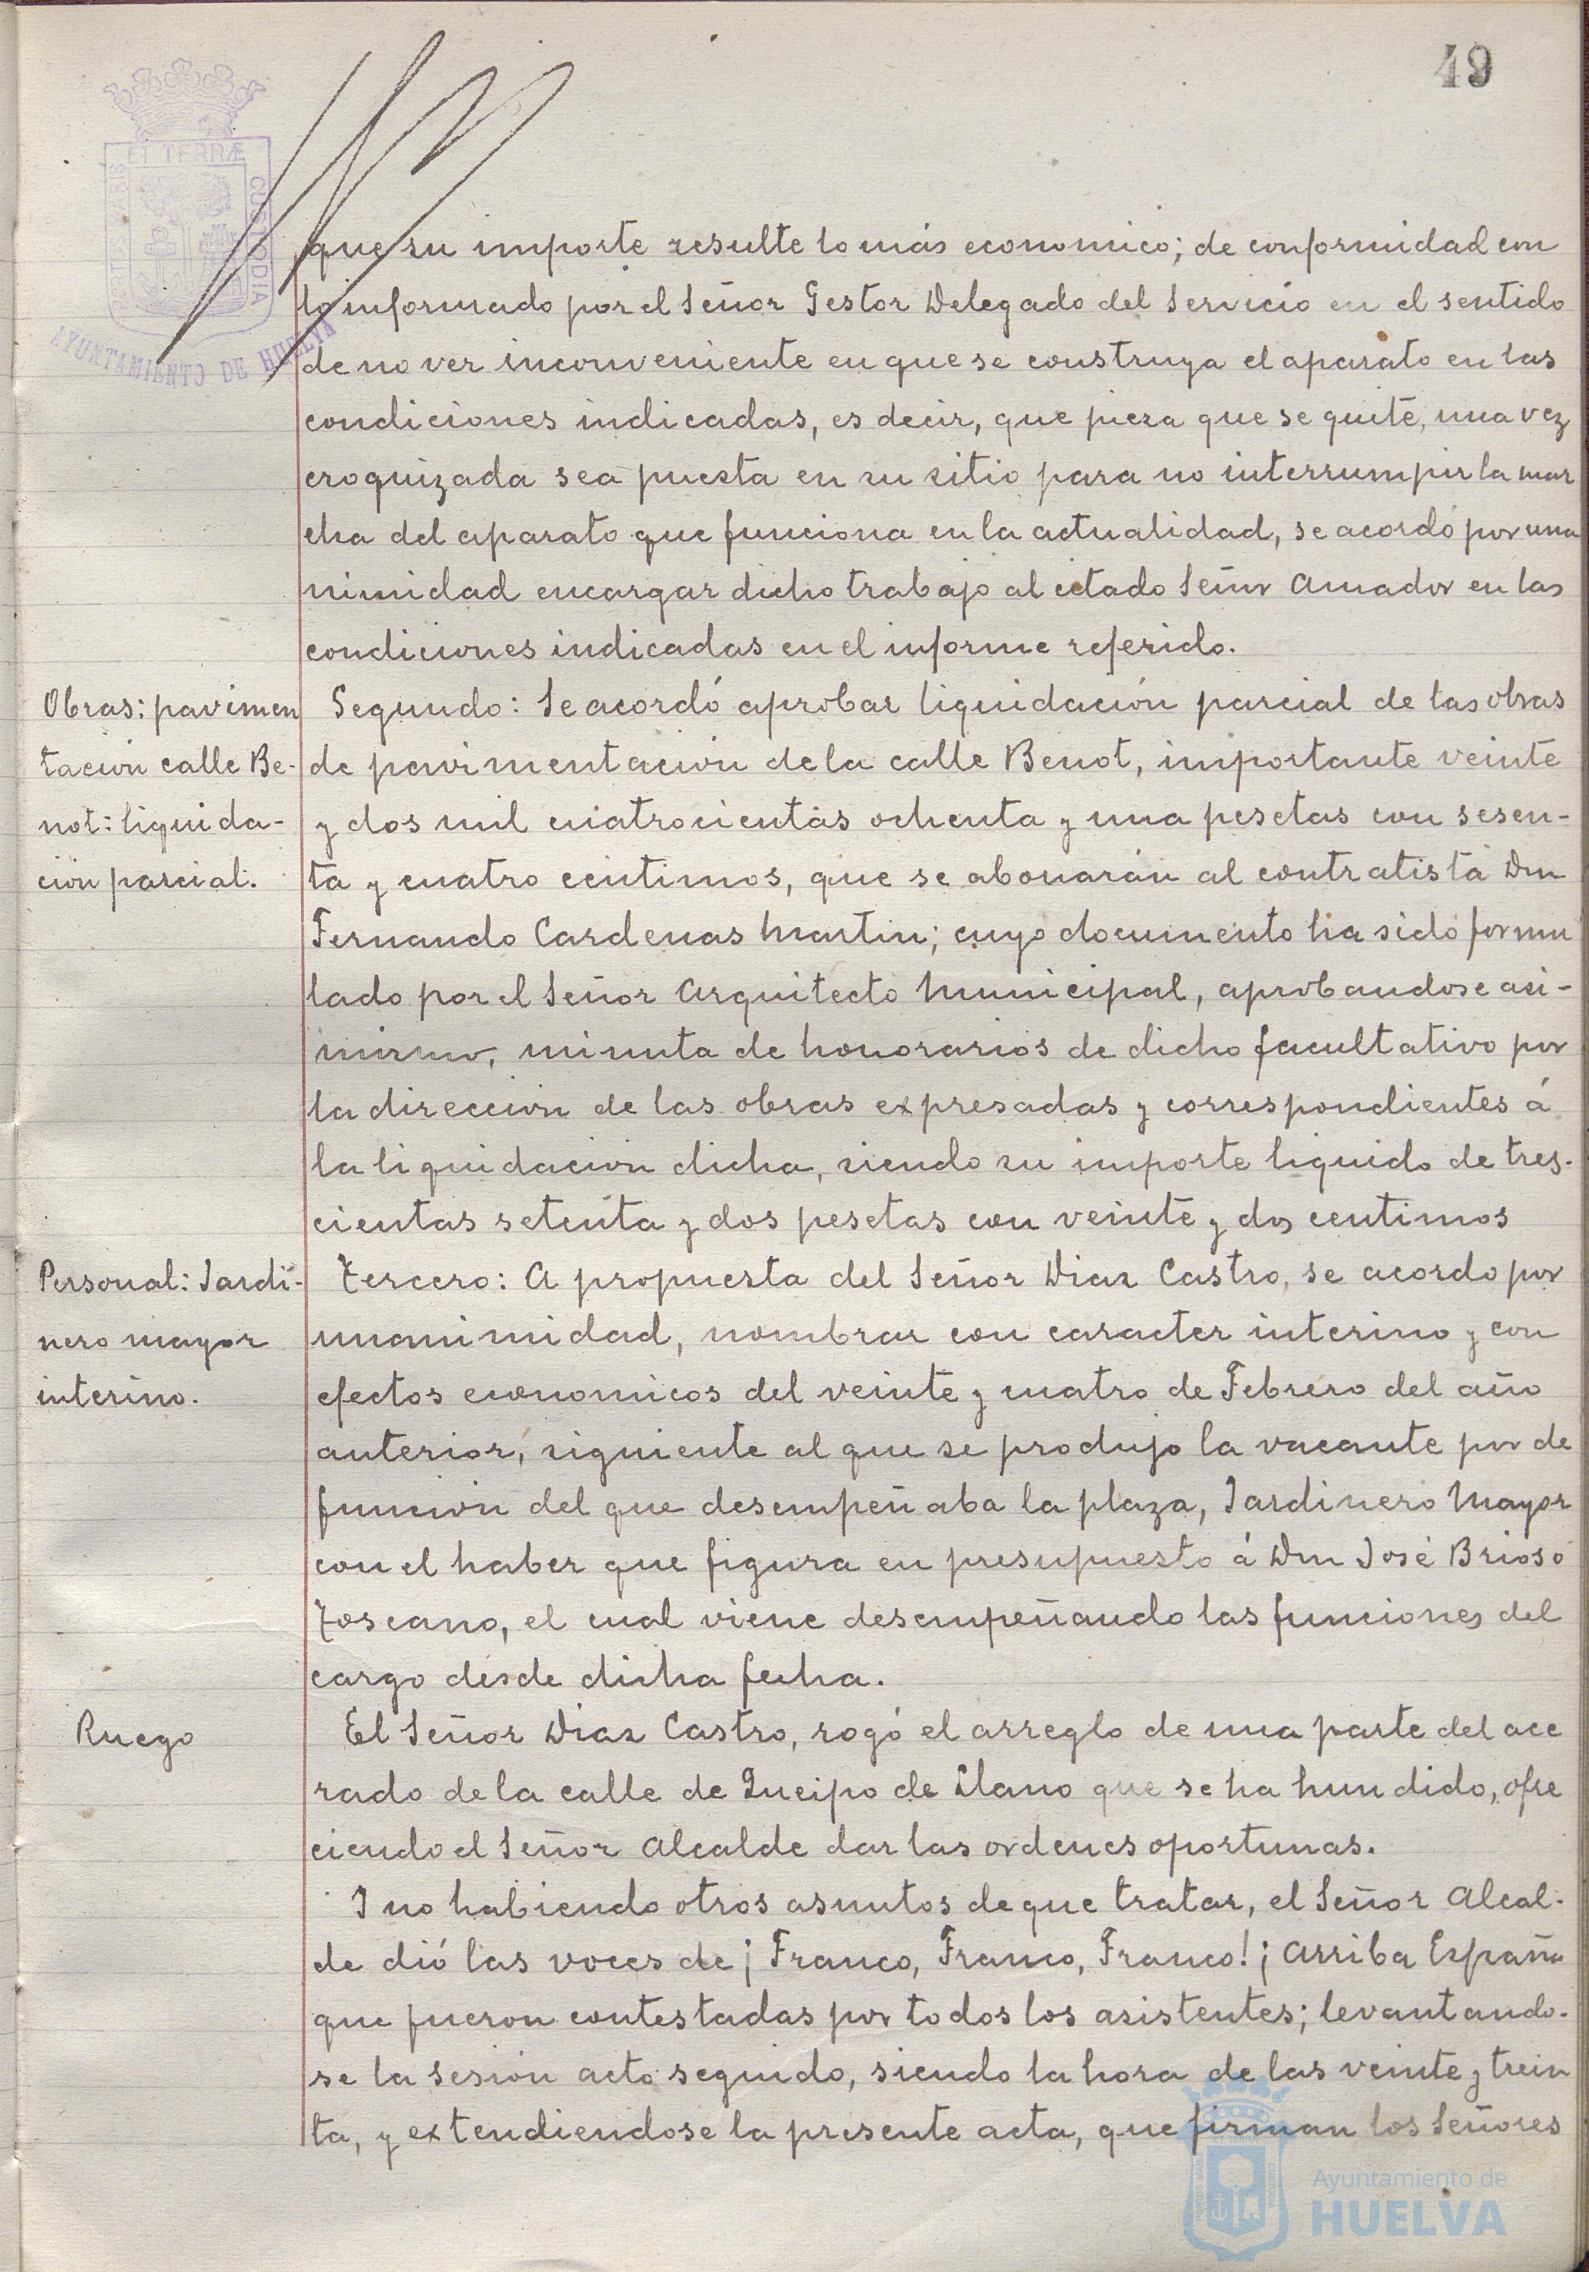 49
ET TERRÆ
PORTUS MARIS
CUSTODIA
AYUNTAMIENTO DE HUELVA
que su importe resulte lo más economico; de conformidad con
lo informado por el Señor Gestor Delegado del Servicio en el sentido
de no ver inconveniente en que se construya el aparato en las
condiciones indicadas, es decir, que pieza que se quite, una vez
croquizada sea puesta en su sitio para no interrumpir la mar
cha del aparato que funciona en la actualidad, se acordó por una
nimidad encargar dicho trabajo al citado Señor Amador en las
condiciones indicadas en el informe referido.
Obras: pavimen
tación calle Be-
not: liquida-
ción parcial.
Segundo: Se acordó aprobar liquidación parcial de las obras
de pavimentación de la calle Benot, importante veinte
y dos mil cuatrocientas ochenta y una pesetas con sesen-
ta y cuatro centimos, que se abonarán al contratista Don
Fernando Cardenas Martin; cuyo documento ha sido formu
lado por el Señor Arquitecto Municipal, aprobandose asi-
mismo, minuta de honorarios de dicho facultativo por
la dirección de las obras expresadas y correspondientes á
la liquidación dicha, siendo su importe liquido de tres-
cientas setenta y dos pesetas con veinte y dos centimos
Personal: Jardi-
nero mayor
interino.
Tercero: A propuesta del Señor Diaz Castro, se acordo por
unanimidad, nombrar con caracter interino y con
efectos economicos del veinte y cuatro de Febrero del año
anterior, siguiente al que se produjo la vacante por de
función del que desempeñaba la plaza, Jardinero Mayor
con el haber que figura en presupuesto á Don José Brioso
Toscano, el cual viene desempeñando las funciones del
cargo desde dicha fecha.
Ruego
El Señor Diaz Castro, rogó el arreglo de una parte del ace
rado de la calle de Queipo de Llano que se ha hundido, ofre
ciendo el Señor Alcalde dar las ordenes oportunas.
Y no habiendo otros asuntos de que tratar, el Señor Alcal-
de dió las voces de ¡Franco, Franco, Franco! ¡Arriba España
que fueron contestadas por todos los asistentes; levantando-
se la sesión acto seguido, siendo la hora de las veinte y trein
ta, y extendiendose la presente acta, que firman los Señores
Ayuntamiento de
HUELVA